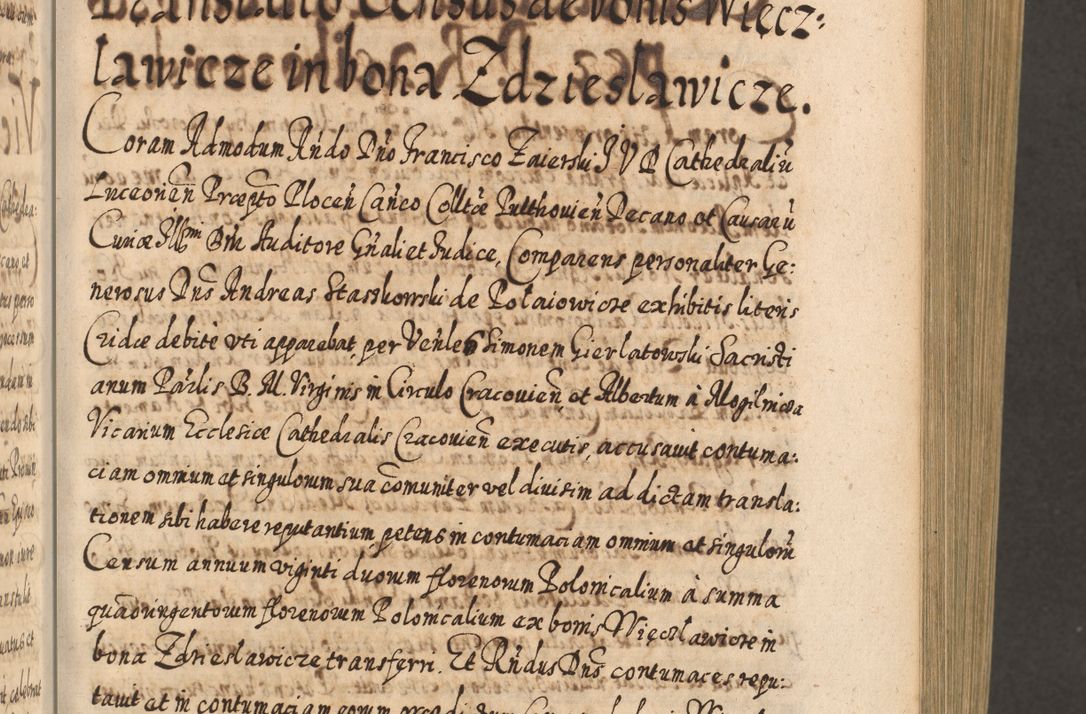 Translatio Census de bonis Więcz:
ławicze in bona Zdziesławicze.
Coram Admodum Rńdo Dńo Francisco Zaierski J V D Cathedraliũ
Luceorień Præpto Płoceń Cańco Colltæ Pułthovień Decano et Causarũ
Curiæ Jllmi Dńi Auditore Gńali et Judice, Comparens personaliter Ge:
nerosus Dńs Andreas Staszkowski de Połaiowicze exhibitis literis
Cridæ debitè vti apparebat, per Veńles Simonem Gierlatowski Sacristi
anum Pařlis B. M. Virginis in Circulo Cracovień et Albertum à Mogilnicza
Vicarium Ecclesiæ Cathedralis Cracovień executis, accusavit contuma:
ciam omnium et singulorum sua cõmuniter vel divisim ad dictam transla:
tionem sibi habere reputantium petens in contumaciam omnium et singulorũ
Censum annuum viginti duorum florenorum Polonicalium à summa
quadringentorum florenorum Polonicalium ex bonis Więczławicze in
bona Zdziesławicze transferri. Et Rńdus Dńs contumaces repu:
tavit et in contumaciam eorum